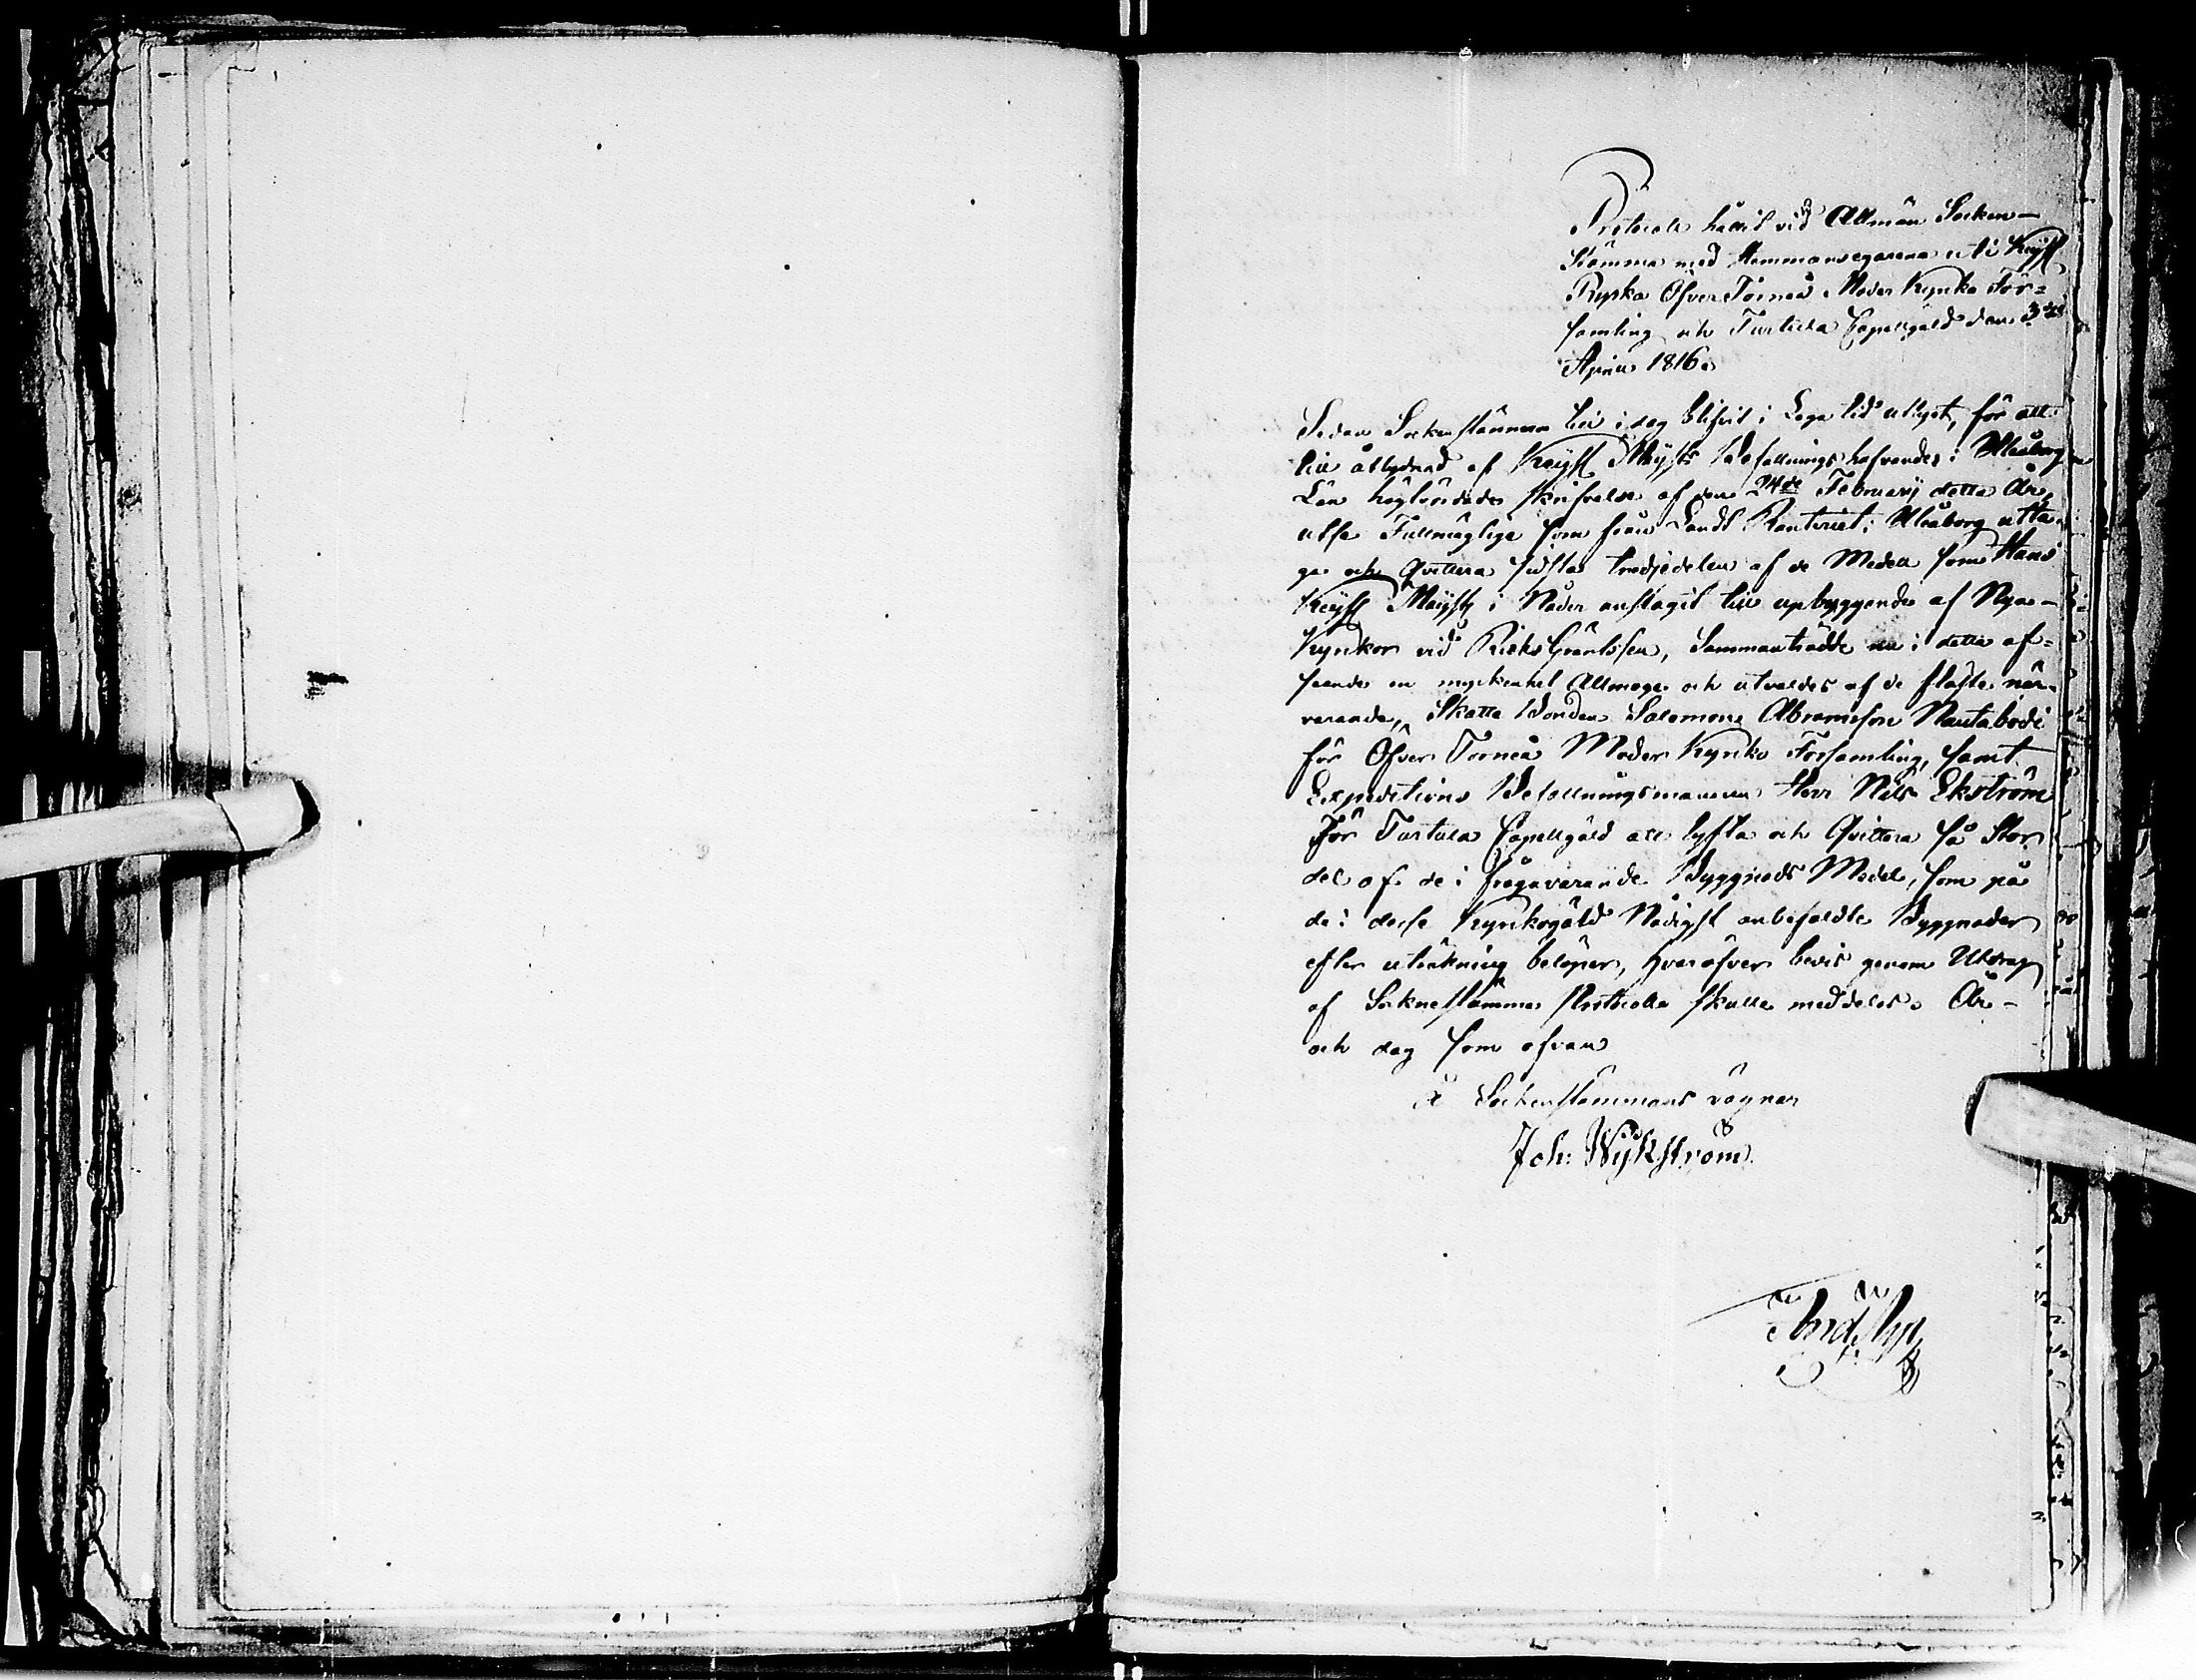 Protocoll hållit vid Allmän Socken-
Stämma med Hemmansegarena uti Keijsl
Ryska Öfver Torneå Moder Kyrko För=
samling och Turtula Capellgäld den 3die
April 1816.
Sedan Sockenstämma till i dag blifvit i Laga tid utlyst, för att
till åtlydnad af Keijsl Maijsts Befallningshafvandes i Uleåborgs
Län höglärdade skrifvelse af den 24de Februarij detta År,
utse Fullmägtige som från Landt Ränteriet i Uleåborg utta-
ga och Qvittera sidsta tredjedelen af de Medell som Hans
Keijsl Maijst i Nåder anslagit till upbyggande af Nya-
Kyrkor vid Riks Gräntsen, Sammanträdde nu i detta af=
seende en myckenhet Allmoge och utvaldes af de fläste när-
varande, Skatte Bonden Salomon Abramsson Nautabodi
för Öfver Torneå Moder Kyrko Församling, samt
Expeditions Befallningsmannen Herr Nils Ekström
för Turtula Capellgäld att lyfta och Qvittera så Stor
del af de i frågavarande Byggnads Medel, som på
de i desse Kyrkogäld Nådigst anbefaldte Byggnader
efter uträkning belöper, hvaröfver bevis genom Utdrag
af Sockenstämmo Protocolle skulle meddelas. År-
och dag som ofvan
å Sockenstämmans vägnar
Joh: Wijkström